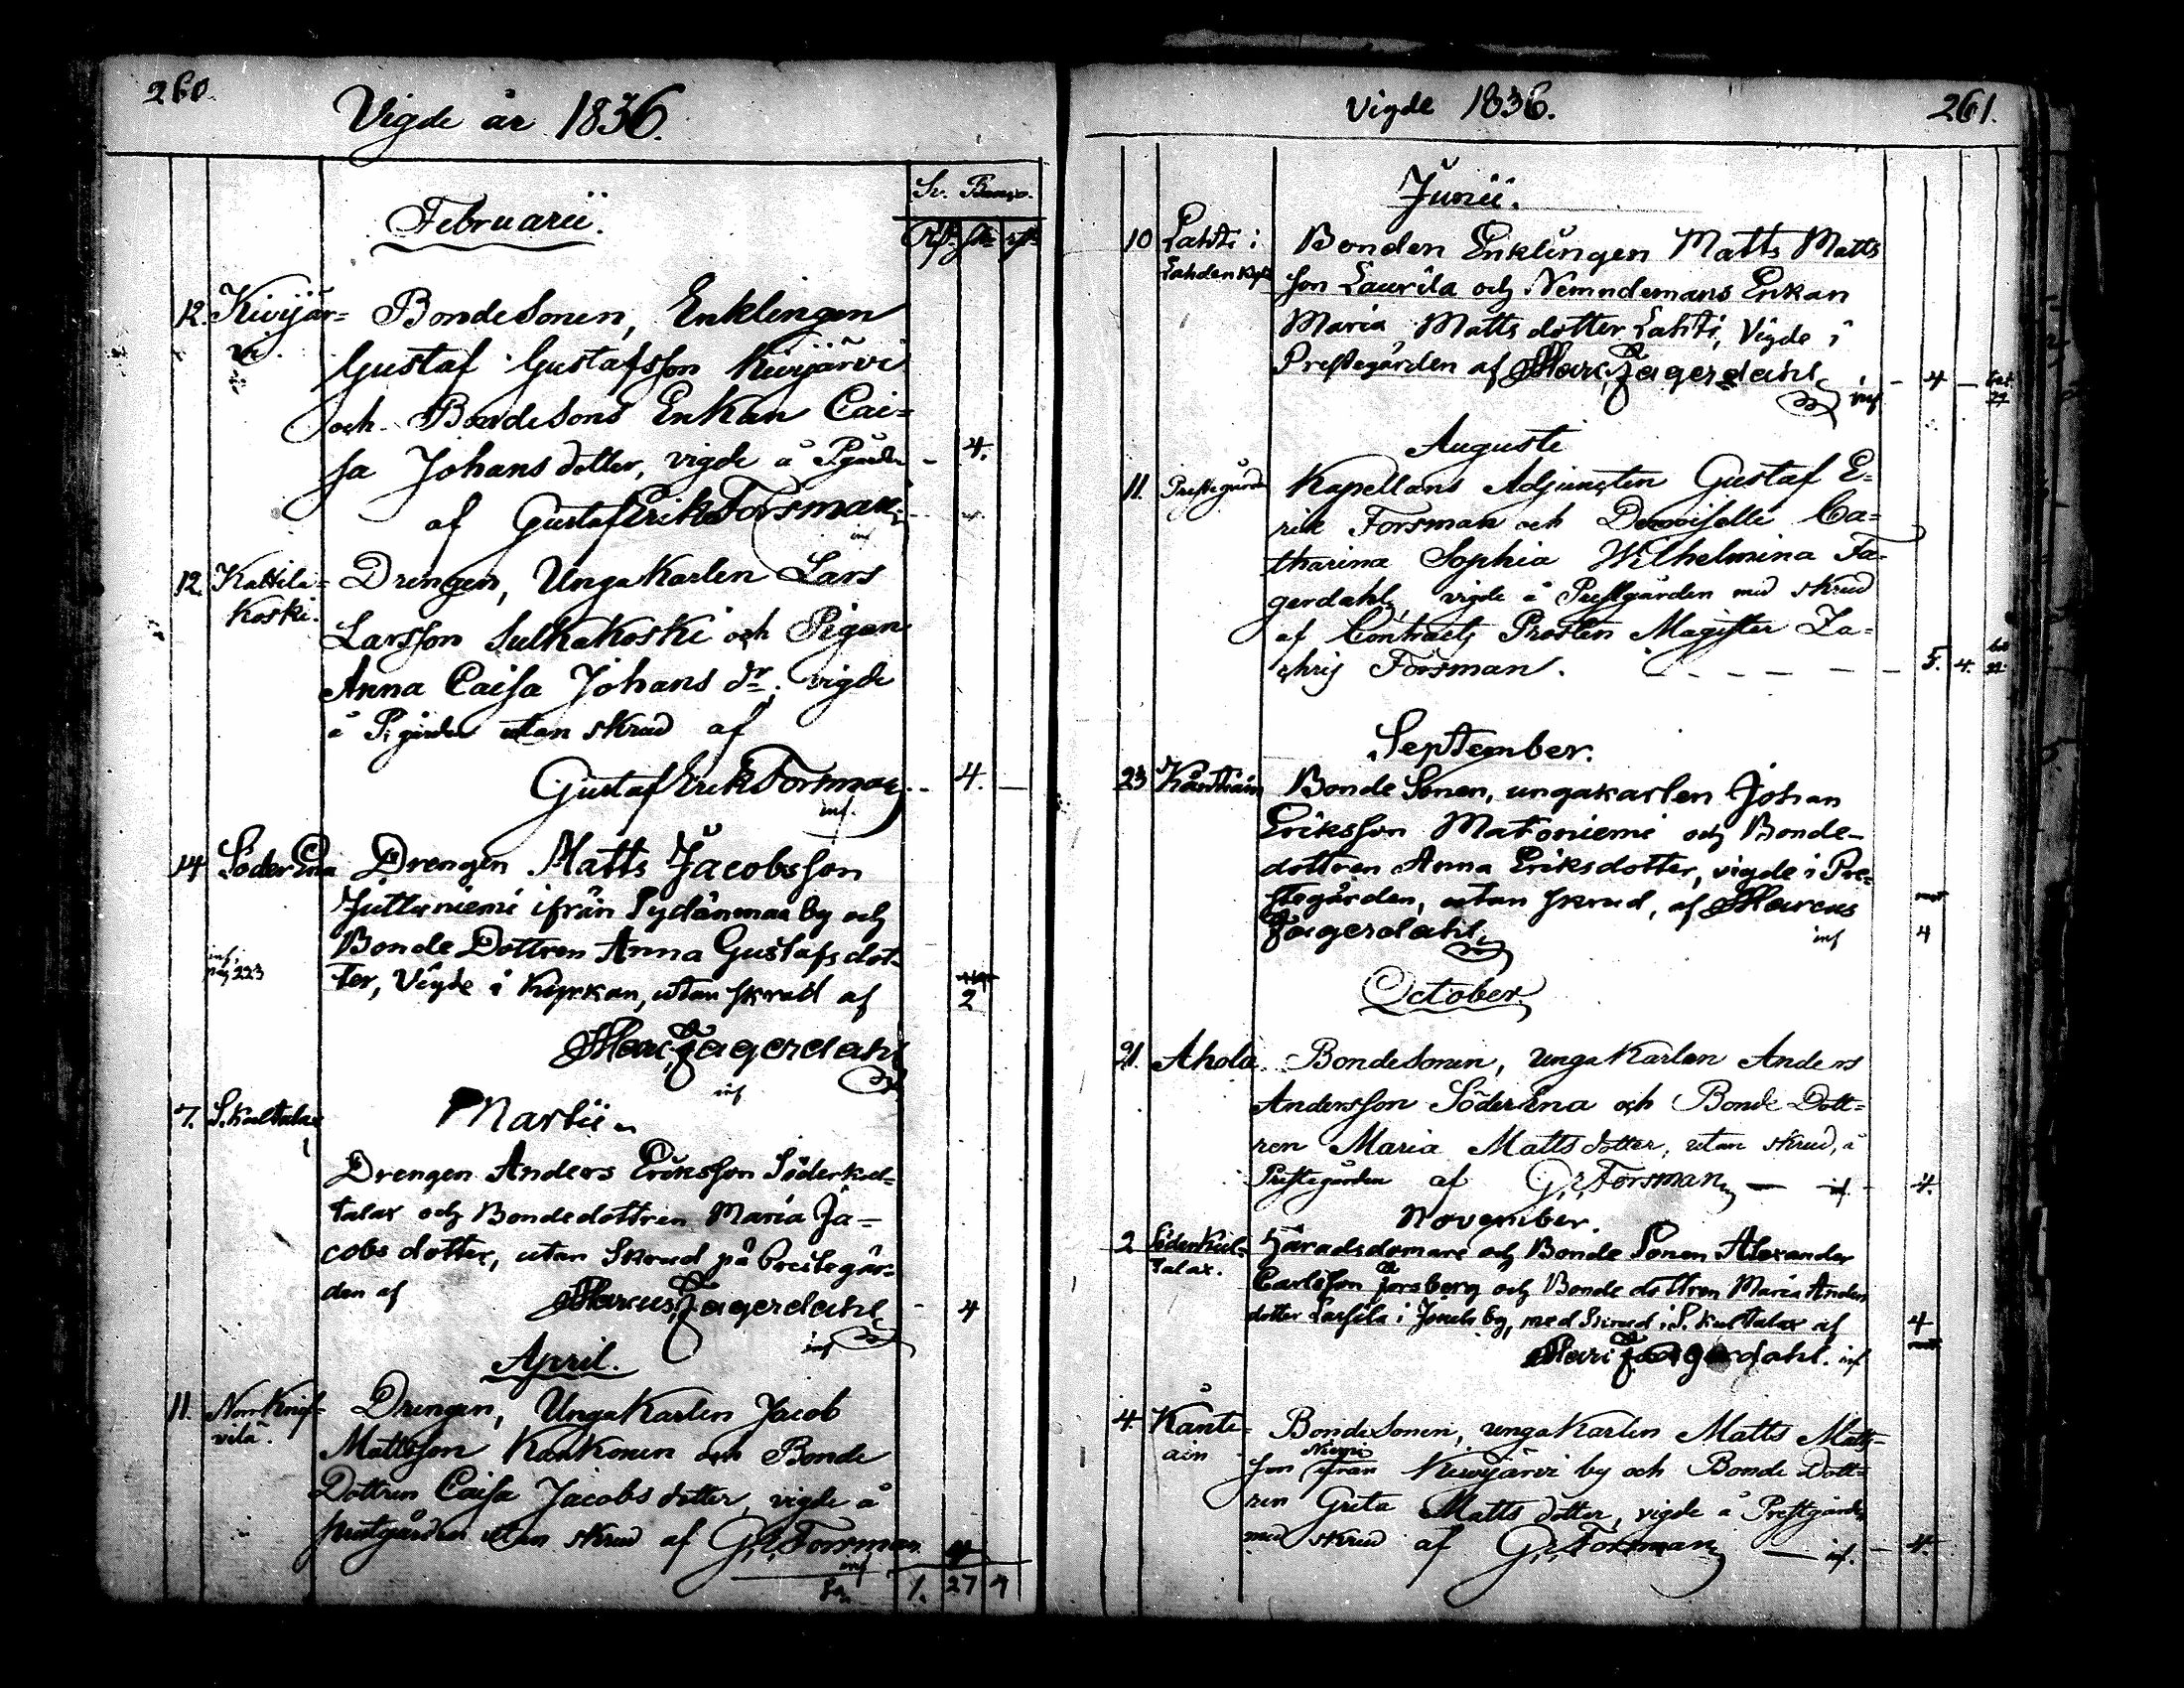 260.
Vigde år 1836.
Sv. Banco.
Februarii.
12. Kivijär= BondeSonen, Enklingen
vi. Gustaf Gustafsson Kivijärvi
och BondeSons Enkan Cai=
sa Johans dotter, vigde å P.gården - 4.
af Gustaf Erik Forsman
inf
12. Kattila= Drengen, Ungakarlen Lars
Koski. Larsson Sulkakoski och Pigan
Anna Caisa Johans dr. vigde
å P.gården utan skrud af
Gustaf Erik Forsman - 4. -
inf.
14 Söder Ena Drengen Matts Jacobsson
Juttuniemi ifrån Sydänmaa by och
Bonde Dottren Anna Gustafs dot-
inf.
pag 223 ter, Vigde i Kyrkan, utan skrud af 2
Marc. Fagerdahl
inf
7. S. Kultalax Martii
Drengen Anders Eriksson Söderkul-
talax och Bondedottren Maria Ja-
cobs dotter, utan Skrud på Prestegår-
den af Marcus Fagerdahl - 4
inf
April.
11. Norr Knif- Drengen, Ungakarlen Jacob
vilä. Mattsson Kaukonen och Bonde
Dottren Caisa Jacobs dotter, vigde å
prestgården utan skrud af G. E. Forsman 4
inf
Sa. 1. 27 4
Vigde 1836. 261.
Junii.
10 Lahti i Bonden Enklingen Matts Matts
Lahdenkylä son Laurila och Nemndemans Enkan
Maria Matts dotter Lahti, Vigde i
Prestegården af Marc. Fagerdahl inf - 4 -
Augusti
11. Prestegården Kapellans Adjuncten Gustaf E=
rik Forsman och Demoiselle Ca=
tharina Sophia Wilhelmina Fa-
gerdahl, vigde å Prestgården med skrud
af Contracts Prosten Magister Za=
chris Forsman. - - - - - 5. 4.
September.
23 Käntäin Bonde Sonen, ungakarlen Johan
Eriksson Matoniemi och Bonde-
dottren Anna Eriksdotter, vigde i Pre-
stegården, utan skrud, af Marcus
Fagerdahl inf 4
October
21. Ahola. BondeSonen, Ungakarlen Anders
Andersson Söderena och Bonde Dott=
ren Maria Matts dotter, utan skrud, å
Prestegården af G. E. Forsman - inf. - 4.
November.
2 Söderkul- Häradsdomare och Bonde Sonen Alexander
talax. Carlsson Forsberg och Bonde dottren Maria Anders
dotter Lassila i Jouch by, med Skrud i S. Kultalax af 4
Marc Fagerdahl. inf
4. Kånte- BondeSonen, ungakarlen Matts Matts-
ain son Niemi ifrån Kivijärvi by och Bonde Dott=
ren Greta Matts dotter, vigde å Prestgården
med skrud af G. E. Forsman - inf. - 4.